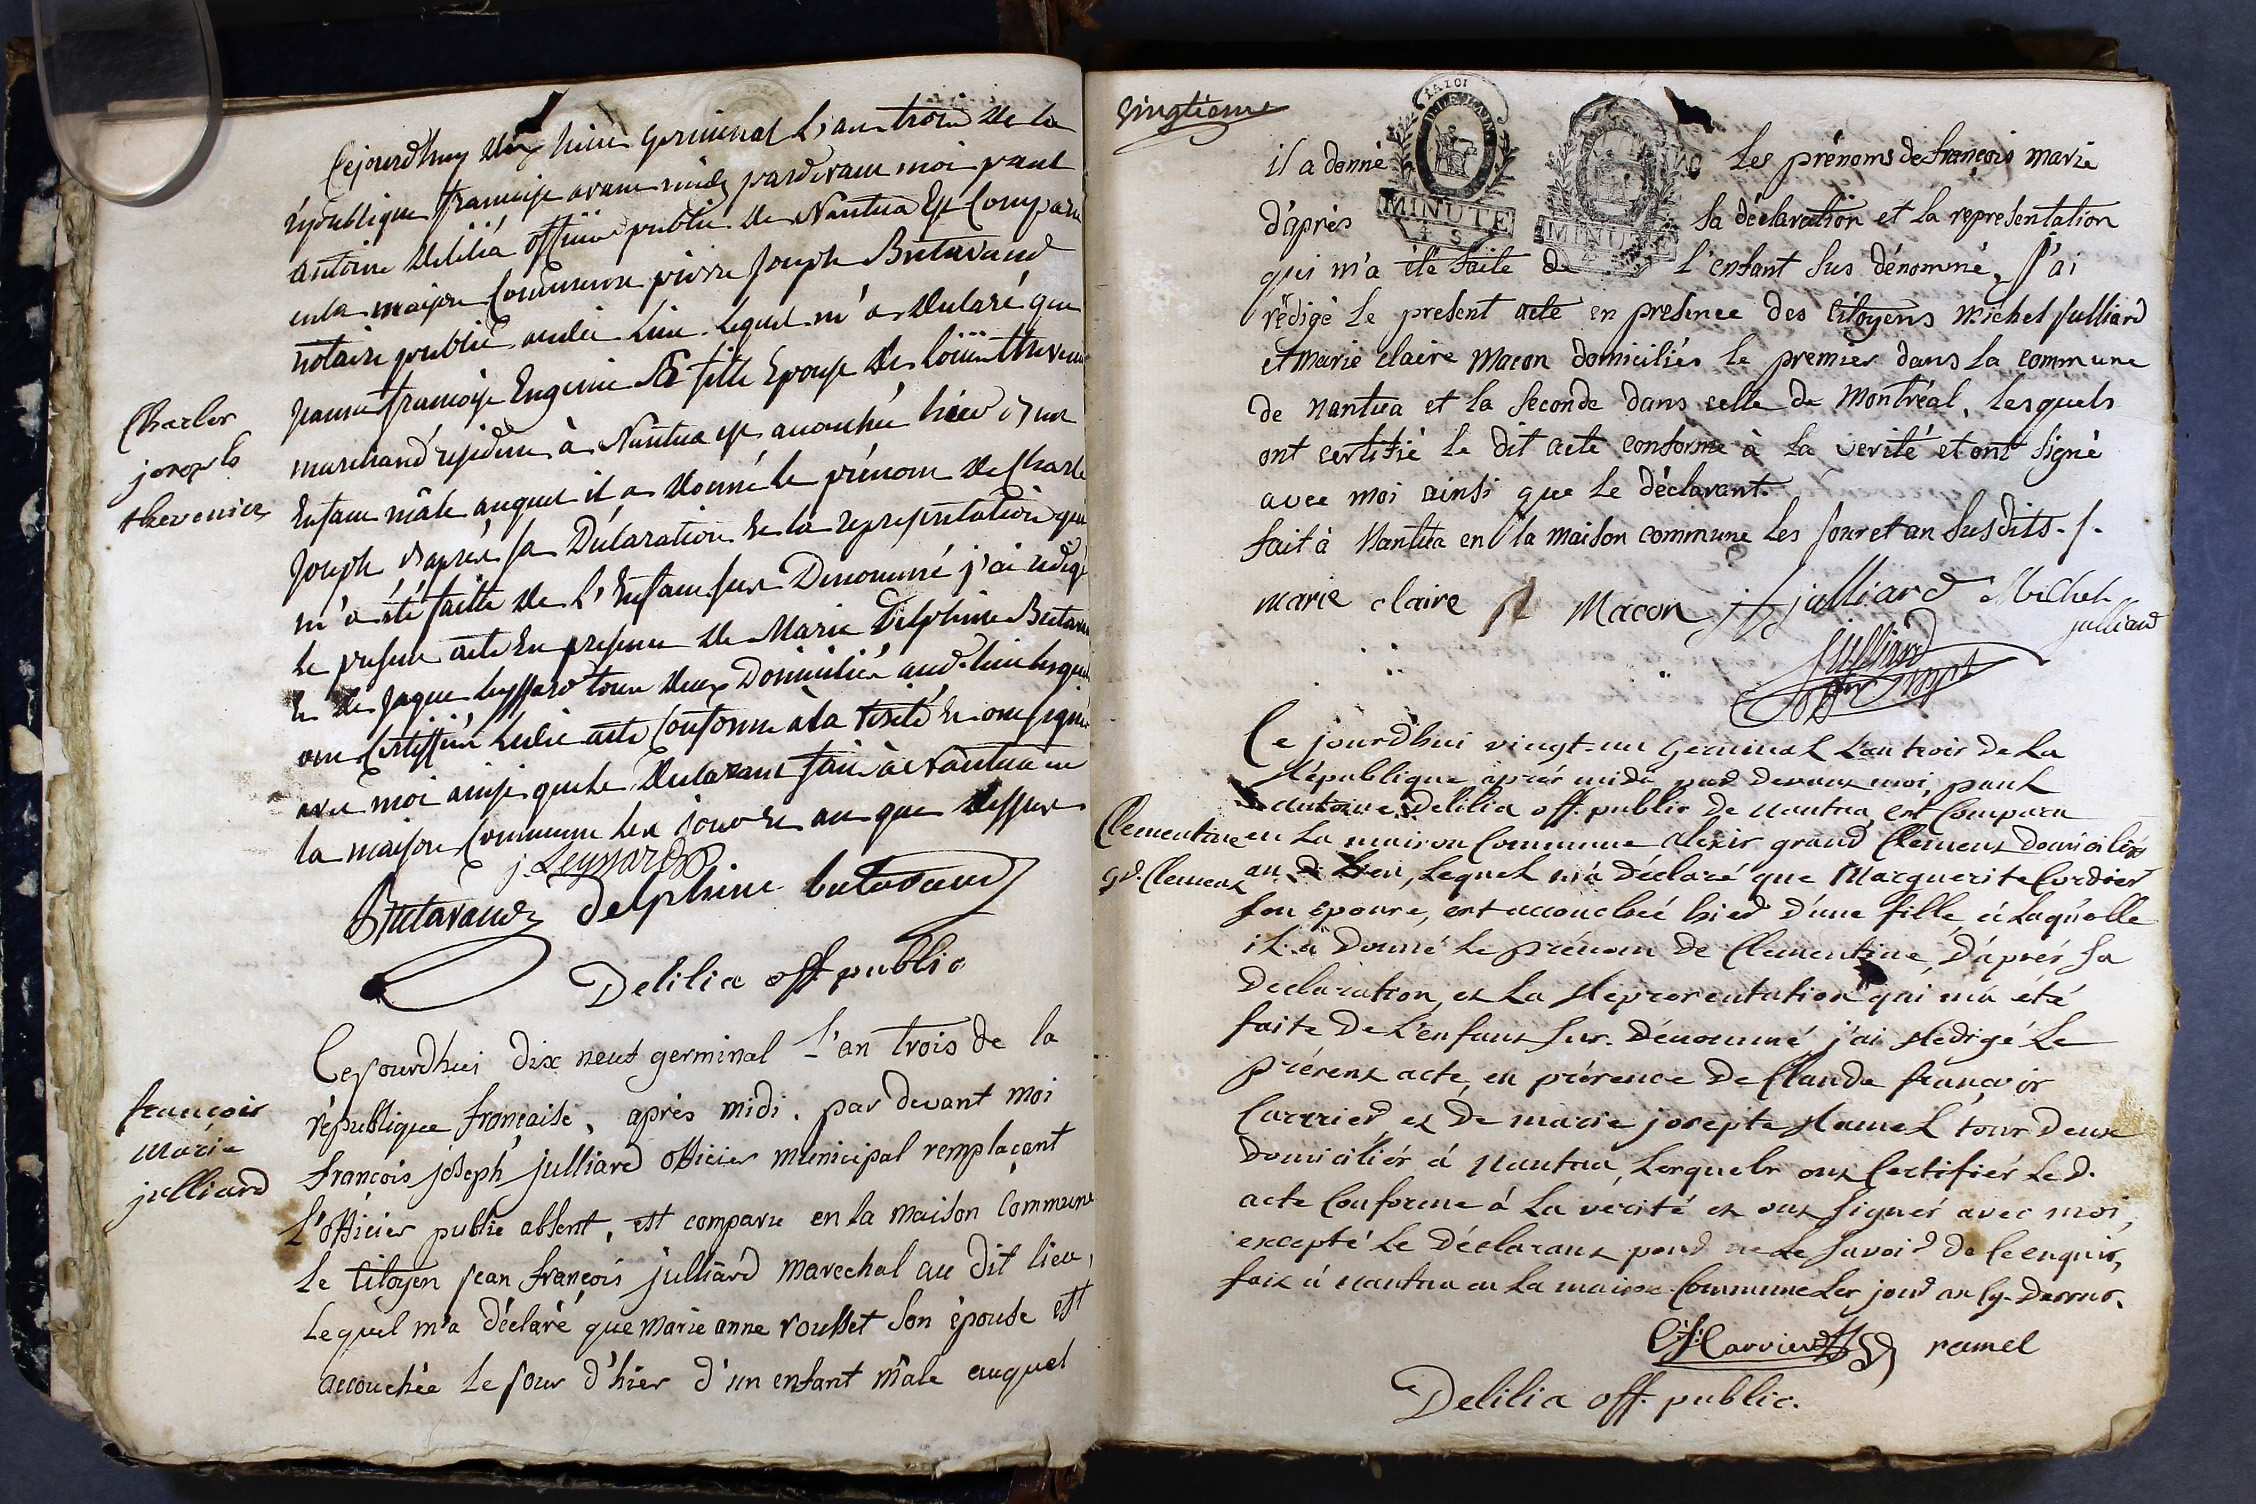 Cejourdhuy dix huit germinal L'an trois de la
république francaise avant midy pardevant moi paul
antoine delilia officier public de Nantua Est Comparu
en la maison Commune pierre Joseph Butavand
notaire public audit lieu lequel m'a declaré que
Jeanne francoise Eugenie sa fille Epouse de Thevenin
marchand résident à Nantua est accouché hier d'un
Charles
joseph
thevenin
Enfant mâle auquel il a donné le prénom de Charle
Joseph d'après sa Déclaration et la representation qui
m'a été faitte de l'Enfant sus Denommé j'ai redigé
le present acte En presence de Marie Delphine Butavand
et de Jaque Leyssard tous deux Domicilié aud. lieu lesquel
ont Certiffié ledit acte Conforme à la vérité et ont signé
avec moi ainsi que le Declarant fait à Nantua en
la maison Commune les jour et an que dessus
j. Leyssard
Butavand Delphine butavand
Delilia off. public
Cejourdhui dix neuf germinal L'an trois de la
république française, après midi, par devant moi
françois
marie
julliard
françois joseph julliard officier municipal remplaçant
L'officier public absent, est comparu en la maison Commune
Le Citoyen jean françois julliard marechal au dit lieu,
Lequel m'a déclaré que marie anne rousset son épouse est
accouchée Le jour d'hier d'un enfant mâle auquel
vingtieme
il a donné Les prénoms de françois marie
MINUTE
MINUTE
4 S
d'après sa déclaration et la representation
qui m'a été faite de L'enfant sus dénommé, J'ai
rédigé Le present acte en presence des Citoyens Michel Julliard
et Marie claire Macon domiciliés le premier dans la commune
de nantua et la seconde dans celle de Montréal, Lesquels
ont certifié Le dit acte conforme à La verité et ont signé
avec moi ainsi que Le déclarant.
fait à Nantua en la maison commune Les Jour et an susdits.
marie claire Macon julliard Michel
julliard
Julliard
off. mpl
Ce jourd'hui vingt-un Germinal L'an trois de La
République après midi par devant moi, paul
antoine Delilia off. public de nantua, est Comparu
Clementine
gd. Clement
en La maison Commune alexis grand Clement domicilié
au d. Lieu, Lequel m'a déclaré que Marguerite Cordier
son épouse, est accouchée hier d'une fille à Laquelle
il a Donné Le prénom de Clementine, D'après Sa
Declaration, et La Representation qui m'a été
faite De L'enfant sus. Dénommé j'ai Redigé Le
présent acte, en présence De Claude françois
Carrier et De marie josepte Ramel tous Deux
Domiciliés à Nantua, Lesquels ont Certifiés Le d.
acte Conforme à La vérité et ont signés avec moi,
excepté Le Déclarant pour ne Le Savoir De Ce enquis,
fait à nantua en La maison Commune Les jour an cy-Dessus.
C. f. Carrier ramel
Delilia off. public.